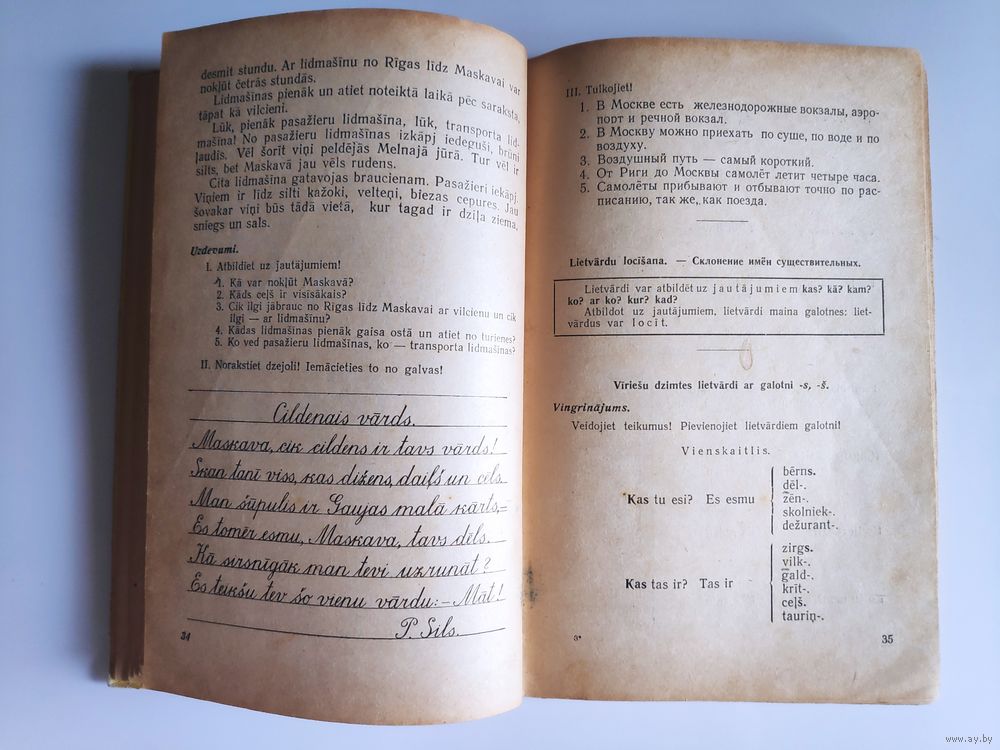 desmit stundu. Ar lidmašīnu no Rīgas līdz Maskavai var
nokļūt četrās stundās.
Lidmašīnas pienāk un atiet noteiktā laikā pēc saraksta,
tāpat kā vilcieni.
Lūk, pienāk pasažieru lidmašīna, lūk, transporta lid-
mašīna! No pasažieru lidmašīnas izkāpj iedeguši, brūni
ļaudis. Vēl šorīt viņi peldējās Melnajā jūrā. Tur vēl ir
silts, bet Maskavā jau vēls rudens.
Cita lidmašīna gatavojas braucienam. Pasažieri iekāpj.
Viņiem ir līdz silti kažoki, velteņi, biezas cepures. Jau
šovakar viņi būs tādā vietā, kur tagad ir dziļa ziema,
sniegs un sals.
Uzdevumi.
I. Atbildiet uz jautājumiem!
1. Kā var nokļūt Maskavā?
2. Kāds ceļš ir visīsākais?
3. Cik ilgi jābrauc no Rīgas līdz Maskavai ar vilcienu un cik
ilgi — ar lidmašīnu?
4. Kādas lidmašīnas pienāk gaisa ostā un atiet no turienes?
5. Ko ved pasažieru lidmašīnas, ko — transporta lidmašīnas?
II. Norakstiet dzejoli! Iemācieties to no galvas!
Cildenais vārds.
Maskava, cik cildens ir tavs vārds!
Skan tanī viss, kas dižens, daiļš un cēls.
Man šūpulis ir Gaujas malā kārts,—
Es tomēr esmu, Maskava, tavs dēls.
Kā sirsnīgāk man tevi uzrunāt?
Es teikšu tev šo vienu vārdu: — Māt!
P. Sils.
34
III. Tulkojiet!
1. В Москве есть железнодорожные вокзалы, аэро-
порт и речной вокзал.
2. В Москву можно приехать по суше, по воде и по
воздуху.
3. Воздушный путь — самый короткий.
4. От Риги до Москвы самолёт летит четыре часа.
5. Самолёты прибывают и отбывают точно по рас-
писанию, так же, как поезда.
Lietvārdu locīšana. — Склонение имён существительных.
Lietvārdi var atbildēt uz jautājumiem kas? kā? kam?
ko? ar ko? kur? kad?
Atbildot uz jautājumiem, lietvārdi maina galotnes: liet-
vārdus var locīt.
Vīriešu dzimtes lietvārdi ar galotni -s, -š.
Vingrinājums.
Veidojiet teikumus! Pievienojiet lietvārdiem galotni!
Vienskaitlis.
Kas tu esi? Es esmu
bērns.
dēl-.
zēn-.
skolniek-.
dežurant-.
Kas tas ir? Tas ir
zirgs.
vilk-.
gald-.
krīt-.
ceļš.
tauriņ-.
3*
35
www.ay.by